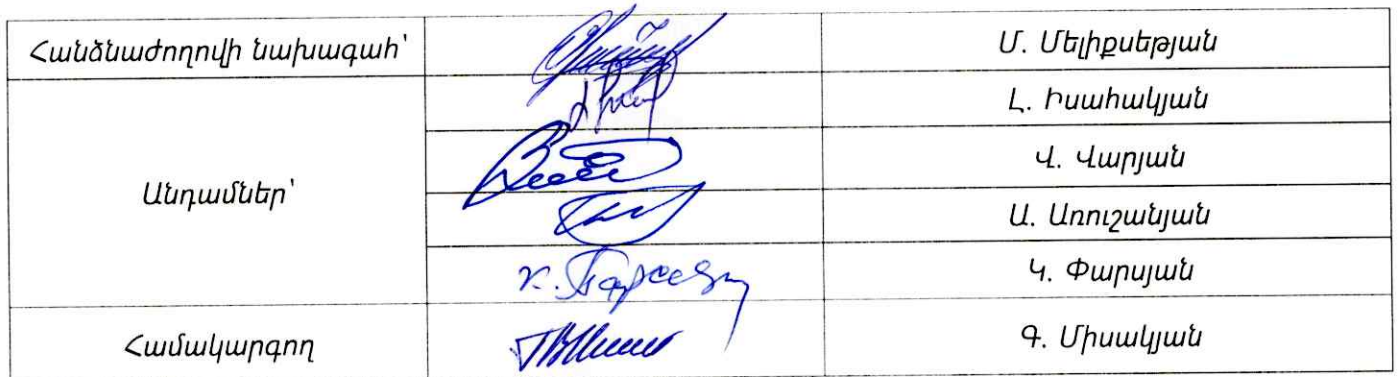 Հանձնաժողովի նախագահ՝ Մ. Մելիքսեթյան
Լ. Իսահակյան
Վ. Վարյան
Անդամներ՝
Ա. Առուշանյան
Կ. Փարսյան
Համակարգող Գ. Միսակյան